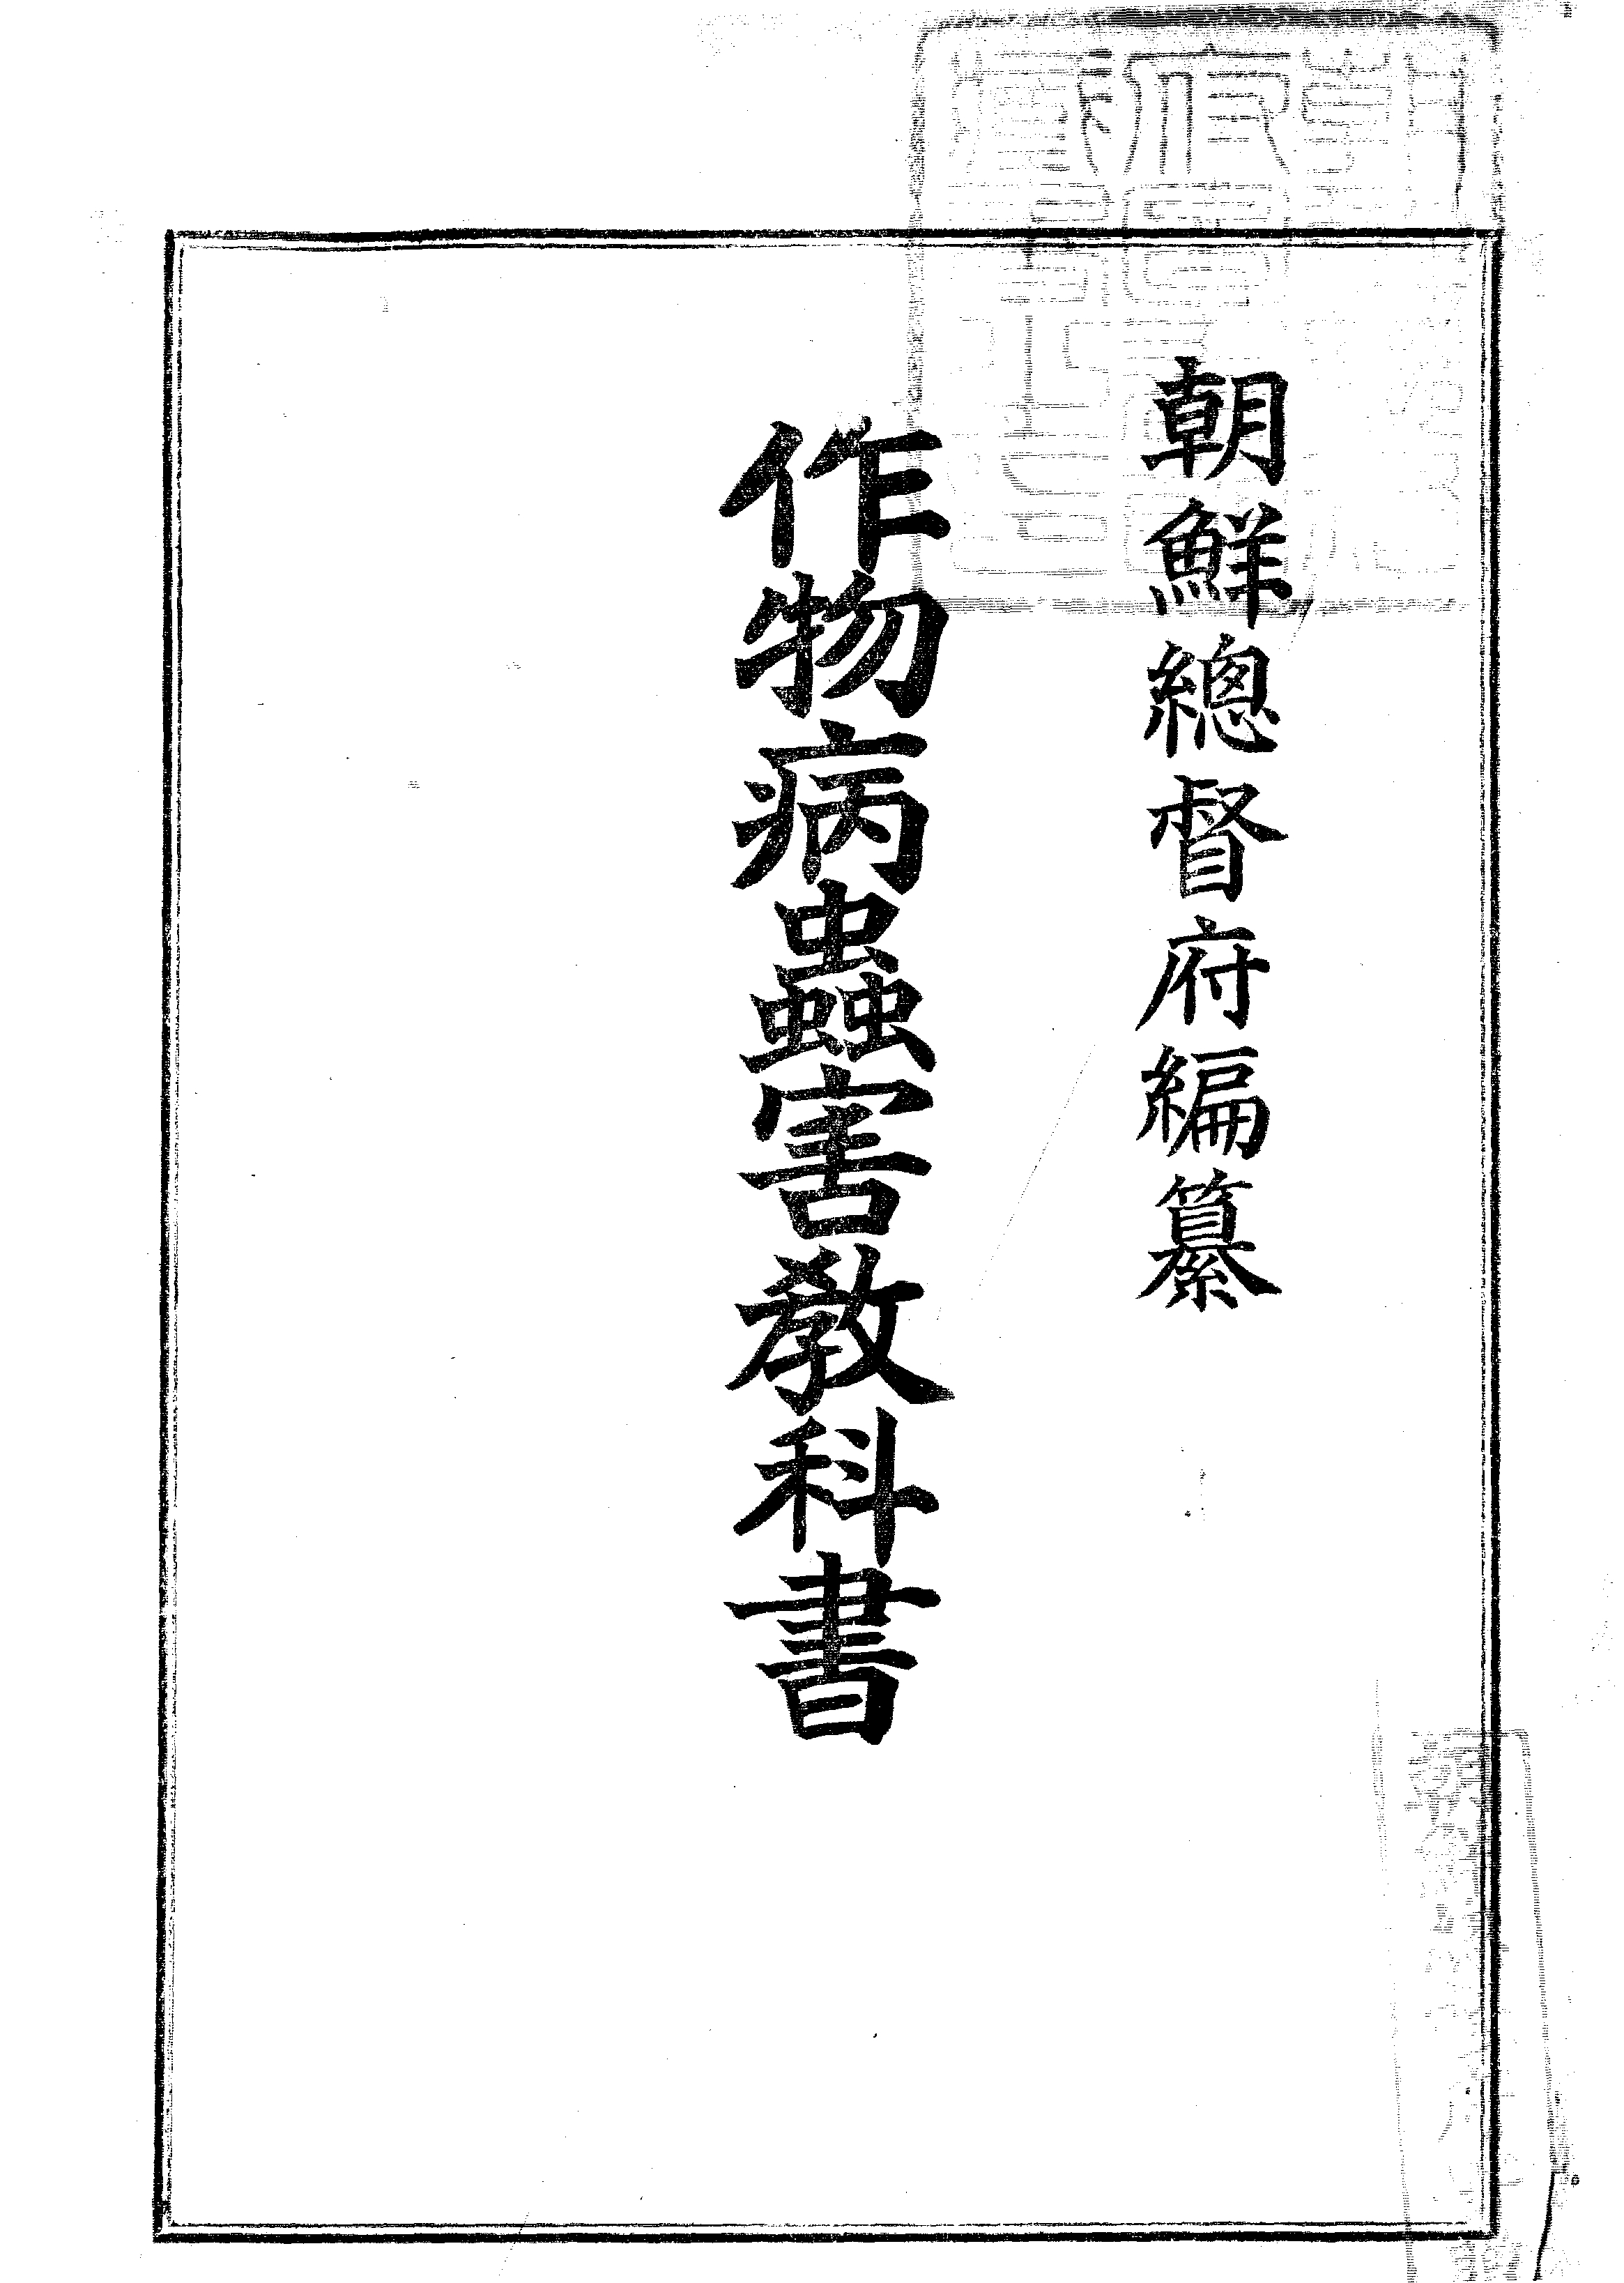 朝鮮總督府編纂
作物病蟲害教科書